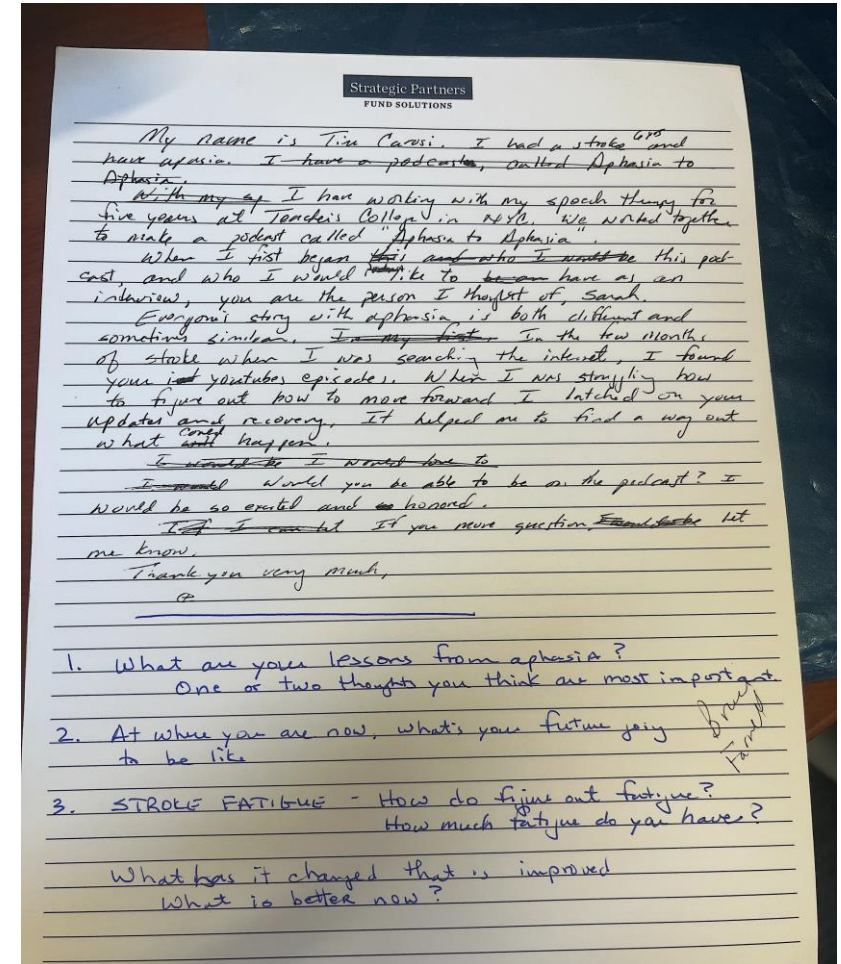 Strategic Partners
FUND SOLUTIONS
My name is Tim Carosi. I had a stroke 6 yrs and
have apasia. I have a podcast, called Aphasia to
Aphasia.
With my ap I have working with my speech therapy for
five years at Teacheis College in NYC. We worked together
to make a podcast called "Aphasia to Aphasia".
When I fist began this and who I would be this pod-
cast, and who I would like to have as an
interview, you are the person I thought of, Sarah.
Everyone's story with aphasia is both different and
sometimes similar. In my first, In the few months
of stroke when I was searching the internet, I found
your youtubes episodes. When I was struggling how
to figure out how to move forward I latched on your
updates and recovery. It helped me to find a way out
what could happen.
I would be I would love to
I would Would you be able to be on the podcast? I
would be so excited and honored.
If I can let If you question, let
me know.
Thank you very much,
1. What are your lessons from aphasia?
One or two thoughts you think are most important.
2. At where you are now, what's your future going
to be like
3. STROKE FATIGUE - How do figure out fatigue?
How much fatigue do you have?
What has it changed that is improved
What is better now?